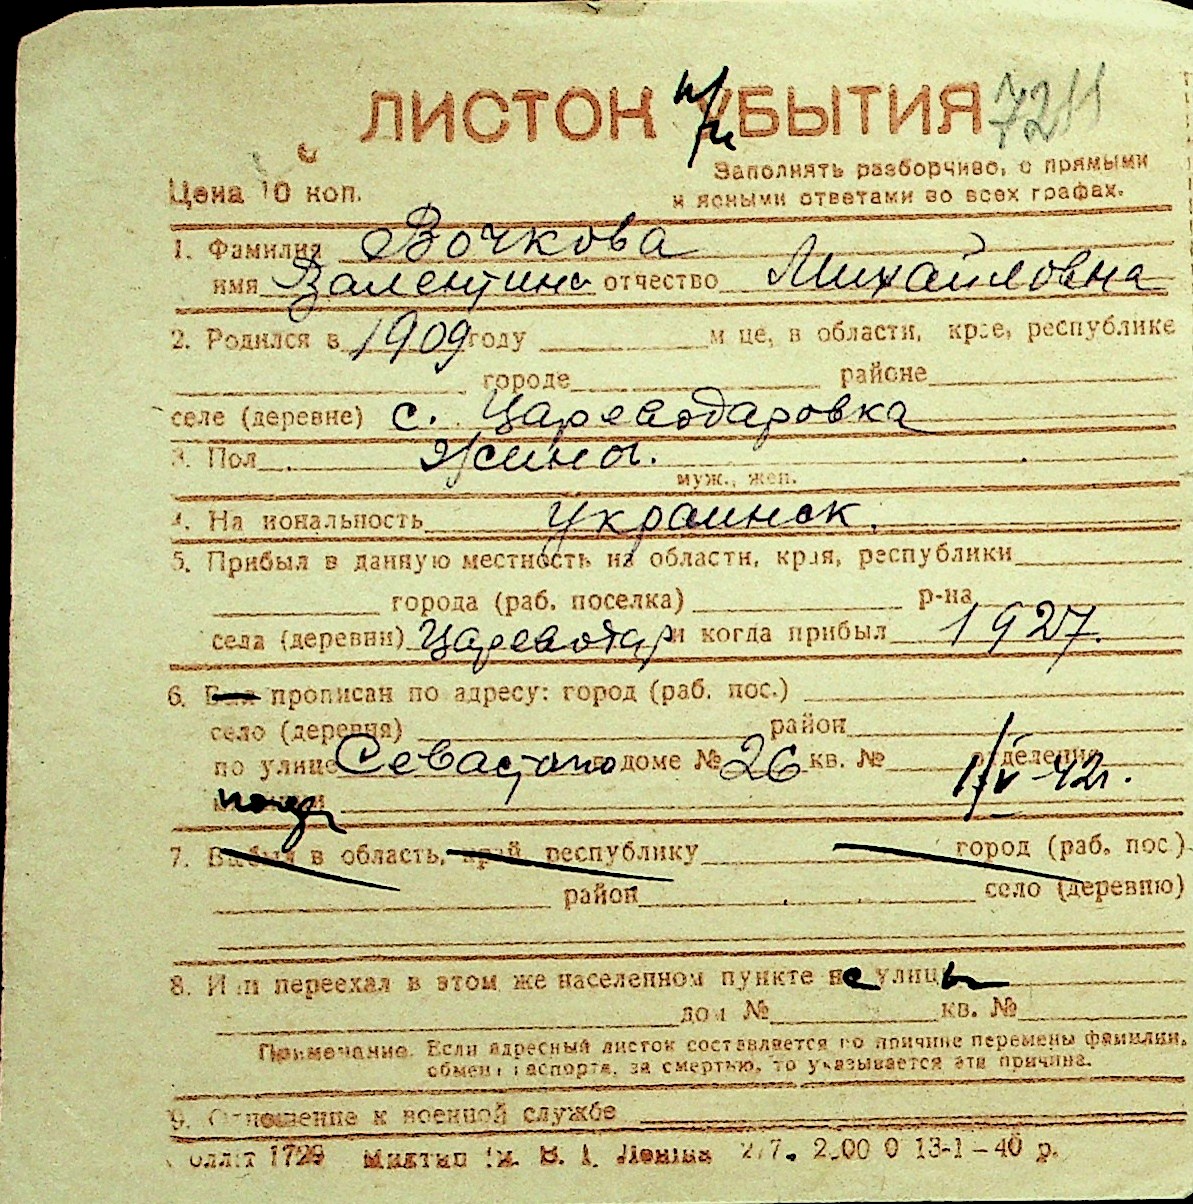 ЛИСТОК УБЫТИЯ 7211
Цена 10 коп.
Заполнять разборчиво, с прямыми
и ясными ответами во всех графах.
1. Фамилия Вочкова
имя Валентина отчество Михайловна
2. Родился в 1909 году м це, в области, крае, республике
городе районе
селе (деревне) с. Цареводаровка
3. Пол
муж., жен.
4. На иональность Украинск.
5. Прибыл в данную местность из области, края, республики
города (раб. поселка) р-на
села (деревни) Цареводар и когда прибыл 1927.
6. Был прописан по адресу: город (раб. пос.)
село (деревня) район
по улице Севастопо в доме № 26 кв. № отделение
1/V-42г.
7. Выбыл в область, край, республику город (раб. пос.)
район село (деревню)
8. И и переехал в этом же населенном пункте не улицы
дом № кв. №
Примечание. Если адресный листок составляется по причине перемены фамилии,
обмена паспорта, за смертью, то указывается эта причина.
9. Отношение к военной службе
1729 им. В. І. Леніна 2.00 0 13-1-40 р.